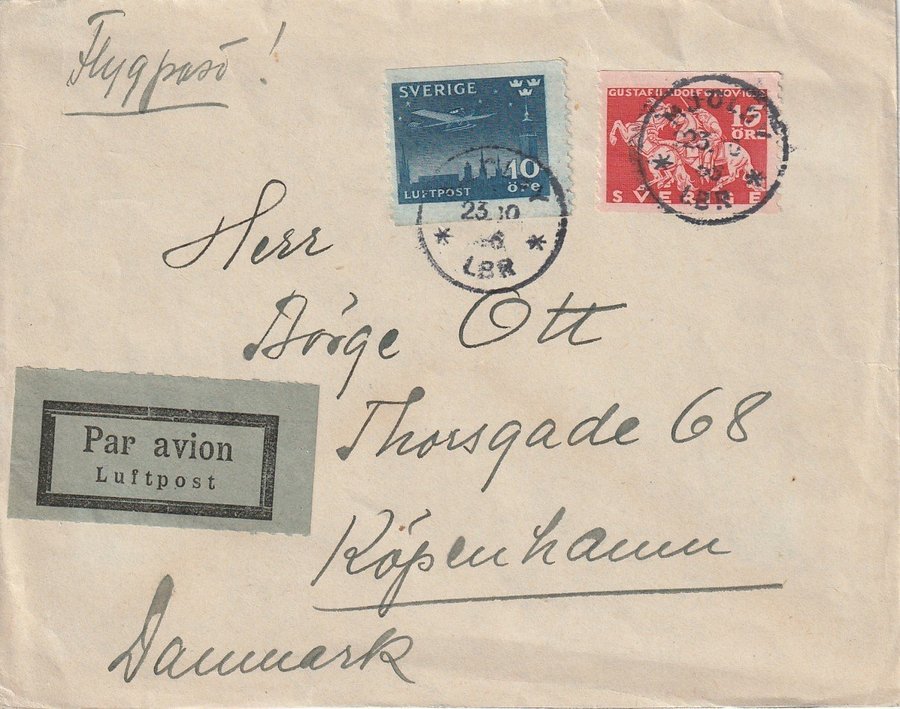 Flygpost!
SVERIGE
10
öre
LUFTPOST
GUSTAF II ADOLF
15
ÖRE
SVERIGE
23.10
LBR
LBR
Herr
Börge Ott
Thorsgade 68
Köpenhamn
Danmark
Par avion
Luftpost